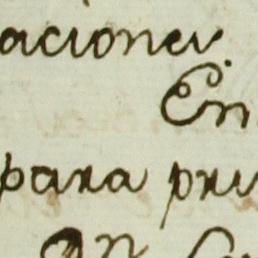 aciones.
En
para pri